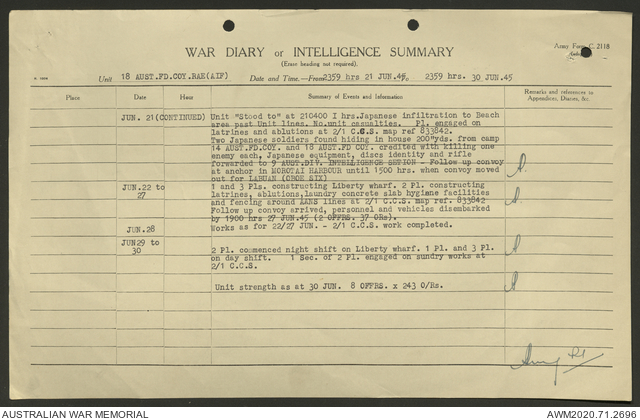 Army Form C. 2118
WAR DIARY or INTELLIGENCE SUMMARY
(Erase heading not required).
Unit 18 AUST.FD.COY.RAE(AIF) Date and Time.—From 2359 hrs 21 JUN.45, to 2359 hrs. 30 JUN.45
Place Date Hour Summary of Events and Information Remarks and references to Appendices, Diaries, &c.
JUN. 21 (CONTINUED) Unit "Stood to" at 210400 I hrs.Japanese infiltration to Beach
area past Unit lines. No.unit casualties. Pl. engaged on
latrines and ablutions at 2/1 C.C.S. map ref 833842.
Two Japanese soldiers found hiding in house 200"yds. from camp
14 AUST.FD.COY. and 18 AUST.FD COY. credited with killing one
enemy each, Japanese equipment, discs identity and rifle
forwarded to 9 AUST.DIV. INTELLIGENCE SETION - Follow up convoy
at anchor in MOROTAI HARBOUR until 1500 hrs. when convoy moved
out for LABUAN (OBOE SIX) A.
JUN.22 to 1 and 3 Pls. constructing Liberty wharf. 2 Pl. constructing
27 latrines, ablutions,laundry concrete slab hygiene facilities
and fencing around AANS lines at 2/1 C.C.S. map ref. 833842
Follow up convoy arrived, personnel and vehicles disembarked
by 1900 hrs 27 JUN.45 (2 OFFRS. 37 ORs). A.
JUN.28 Works as for 22/27 JUN. - 2/1 C.C.S. work completed.
JUN29 to
30 2 Pl. commenced night shift on Liberty wharf. 1 Pl. and 3 Pl.
on day shift. 1 Sec. of 2 Pl. engaged on sundry works at
2/1 C.C.S. A
Unit strength as at 30 JUN. 8 OFFRS. x 243 O/Rs. A
AUSTRALIAN WAR MEMORIAL AWM2020.71.2696